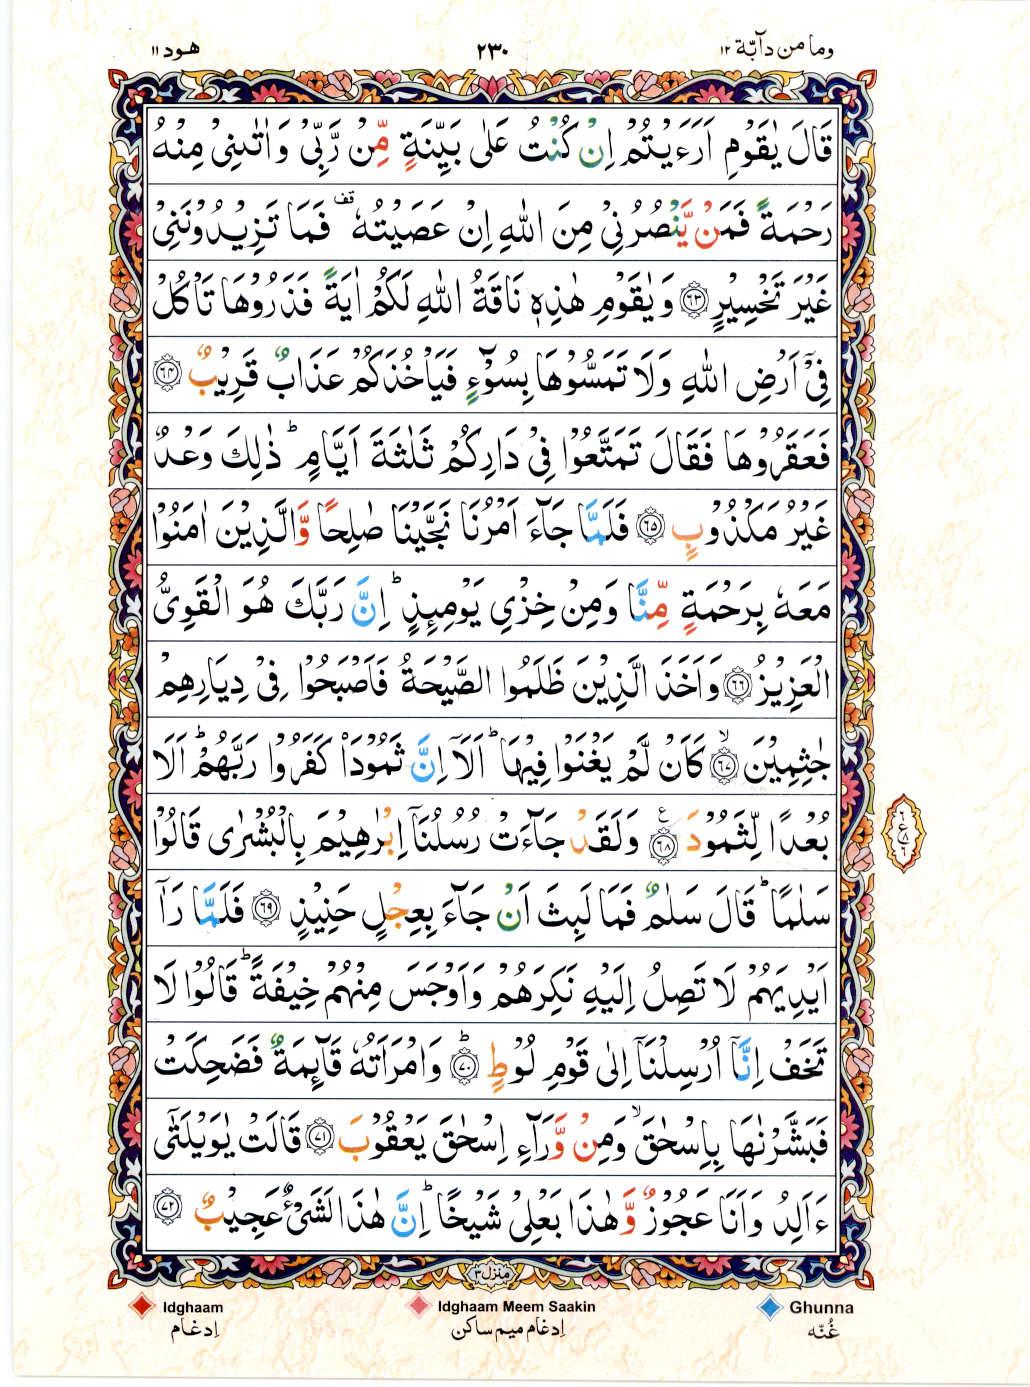 وما من دآبّة ١٢
٢٣٠
هود ١١
قَالَ يٰقَوۡمِ اَرَءَيۡتُمۡ اِنۡ كُنۡتُ عَلٰى بَيِّنَةٍ مِّنۡ رَّبِّىۡ وَاٰتٰىنِىۡ مِنۡهُ
رَحۡمَةً فَمَنۡ يَّنۡصُرُنِىۡ مِنَ اللّٰهِ اِنۡ عَصَيۡتُهٗ ۖقف فَمَا تَزِيۡدُوۡنَنِىۡ
غَيۡرَ تَخۡسِيۡرٍ ﴿٦٣﴾ وَيٰقَوۡمِ هٰذِهٖ نَاقَةُ اللّٰهِ لَكُمۡ اٰيَةً فَذَرُوۡهَا تَاۡكُلۡ
فِىۡۤ اَرۡضِ اللّٰهِ وَلَا تَمَسُّوۡهَا بِسُوۡٓءٍ فَيَاۡخُذَكُمۡ عَذَابٌ قَرِيۡبٌ ﴿٦٤﴾
فَعَقَرُوۡهَا فَقَالَ تَمَتَّعُوۡا فِىۡ دَارِكُمۡ ثَلٰثَةَ اَيَّامٍ ؕ ذٰلِكَ وَعۡدٌ
غَيۡرُ مَكۡذُوۡبٍ ﴿٦٥﴾ فَلَمَّا جَآءَ اَمۡرُنَا نَجَّيۡنَا صٰلِحًا وَّالَّذِيۡنَ اٰمَنُوۡا
مَعَهٗ بِرَحۡمَةٍ مِّنَّا وَمِنۡ خِزۡىِ يَوۡمِٮِٕذٍ ؕ اِنَّ رَبَّكَ هُوَ الۡقَوِىُّ
الۡعَزِيۡزُ ﴿٦٦﴾ وَاَخَذَ الَّذِيۡنَ ظَلَمُوا الصَّيۡحَةُ فَاَصۡبَحُوۡا فِىۡ دِيَارِهِمۡ
جٰثِمِيۡنَ ۙ﴿٦٧﴾ كَاَنۡ لَّمۡ يَغۡنَوۡا فِيۡهَا ؕ اَلَاۤ اِنَّ ثَمُوۡدَا۟ كَفَرُوۡا رَبَّهُمۡ ؕ اَلَا
بُعۡدًا لِّثَمُوۡدَ ﴿٦٨﴾ ع وَلَقَدۡ جَآءَتۡ رُسُلُنَاۤ اِبۡرٰهِيۡمَ بِالۡبُشۡرٰى قَالُوۡا
ع ٦ ٨ ٦
سَلٰمًا ؕ قَالَ سَلٰمٌ فَمَا لَبِثَ اَنۡ جَآءَ بِعِجۡلٍ حَنِيۡذٍ ﴿٦٩﴾ فَلَمَّا رَاٰۤ
اَيۡدِيَهُمۡ لَا تَصِلُ اِلَيۡهِ نَكِرَهُمۡ وَاَوۡجَسَ مِنۡهُمۡ خِيۡفَةً ؕ قَالُوۡا لَا
تَخَفۡ اِنَّاۤ اُرۡسِلۡنَاۤ اِلٰى قَوۡمِ لُوۡطٍ ؕ﴿٧٠﴾ وَامۡرَاَتُهٗ قَآٮِٕمَةٌ فَضَحِكَتۡ
فَبَشَّرۡنٰهَا بِاِسۡحٰقَ ۙ وَمِنۡ وَّرَآءِ اِسۡحٰقَ يَعۡقُوۡبَ ﴿٧١﴾ قَالَتۡ يٰوَيۡلَتٰٓى
ءَاَلِدُ وَاَنَا عَجُوۡزٌ وَّهٰذَا بَعۡلِىۡ شَيۡخًا ؕ اِنَّ هٰذَا لَشَىۡءٌ عَجِيۡبٌ ﴿٧٢﴾
منزل ٣
Idghaam
Idghaam Meem Saakin
Ghunna
اِدغام
اِدغام میم ساکن
غُنّه